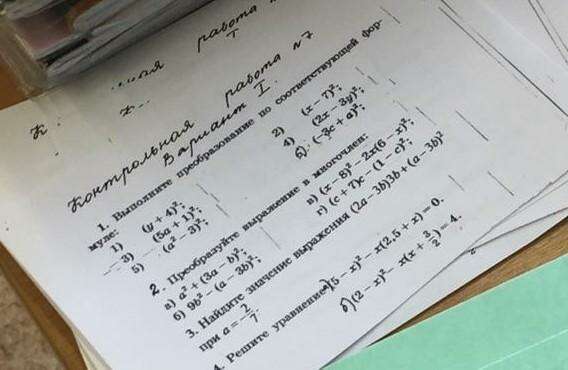 работа
I
Контрольная работа №7
Вариант I.
1. Выполните преобразование по соответствующей фор-
муле:
1) (y + 4)²; 2) (x − 7)²;
3) (5a + 1)²; 4) (2x − 3y)²;
5) (a² − 3)²; 6) (−3c + a)²;
2. Преобразуйте выражение в многочлен:
а) a² + (3a − b)²; в) (x − 8)² − 2x(6 − x)²;
б) 9b² − (a − 3b)²; г) (c + 7)c − (1 − c)²;
3. Найдите значение выражения (2a − 3b)3b + (a − 3b)²
при a = −2/7.
4. Решите уравнение: а) (5 − x)² − x(2,5 + x) = 0.
б) (2 − x)² − x(x + 3/2) = 4.